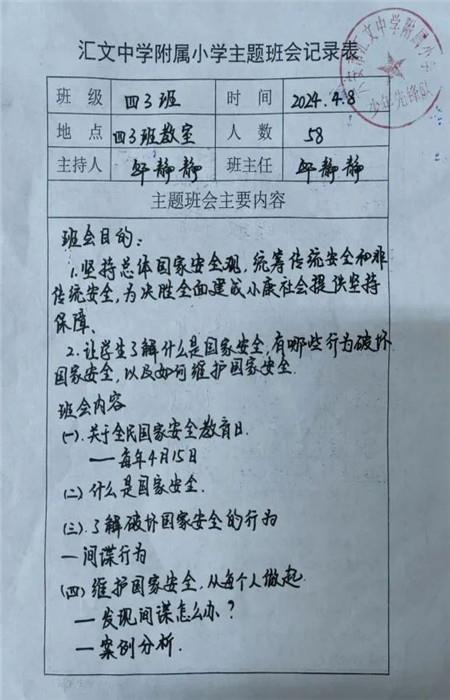 汇文中学附属小学主题班会记录表
班级 四3班 时间 2024.4.8
地点 四3班教室 人数 58
主持人 静静 班主任 静静
主题班会主要内容
班会目的:
1.坚持总体国家安全观,统筹传统安全和非
传统安全,为决胜全面建成小康社会提供坚持
保障、
2.让学生了解什么是国家安全,有哪些行为破坏
国家安全,以及如何维护国家安全.
班会内容
(一).关于全民国家安全教育日.
——每年4月15日
(二)什么是国家安全.
(三).了解破坏国家安全的行为
—间谍行为
(四)维护国家安全,从每个人做起.
—发现间谍怎么办?
—案例分析.
汇文中学附属小学
少年先锋队